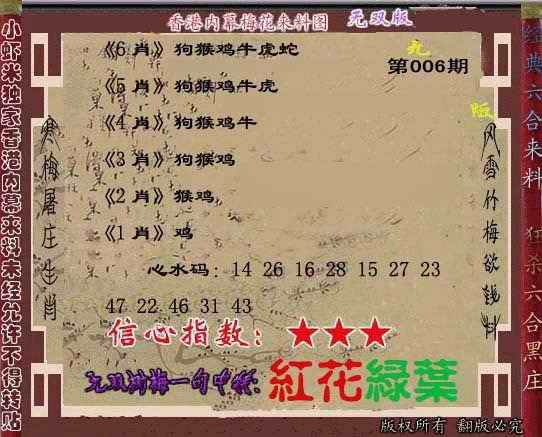 香港内幕梅花来料图 无双版
九
第006期
版
《6 肖》狗猴鸡牛虎蛇
《5 肖》狗猴鸡牛虎
《4 肖》狗猴鸡牛
《3 肖》狗猴鸡
《2 肖》猴鸡
《1 肖》鸡
心水码：14 26 16 28 15 27 23
47 22 46 31 43
信心指数：★★★
紅花綠葉
小虾米独家香港内幕来料未经允许不得转贴
寒梅屠庄生肖
风雪竹梅欲钱料
经典六合来料
狂杀六合黑庄
版权所有 翻版必究